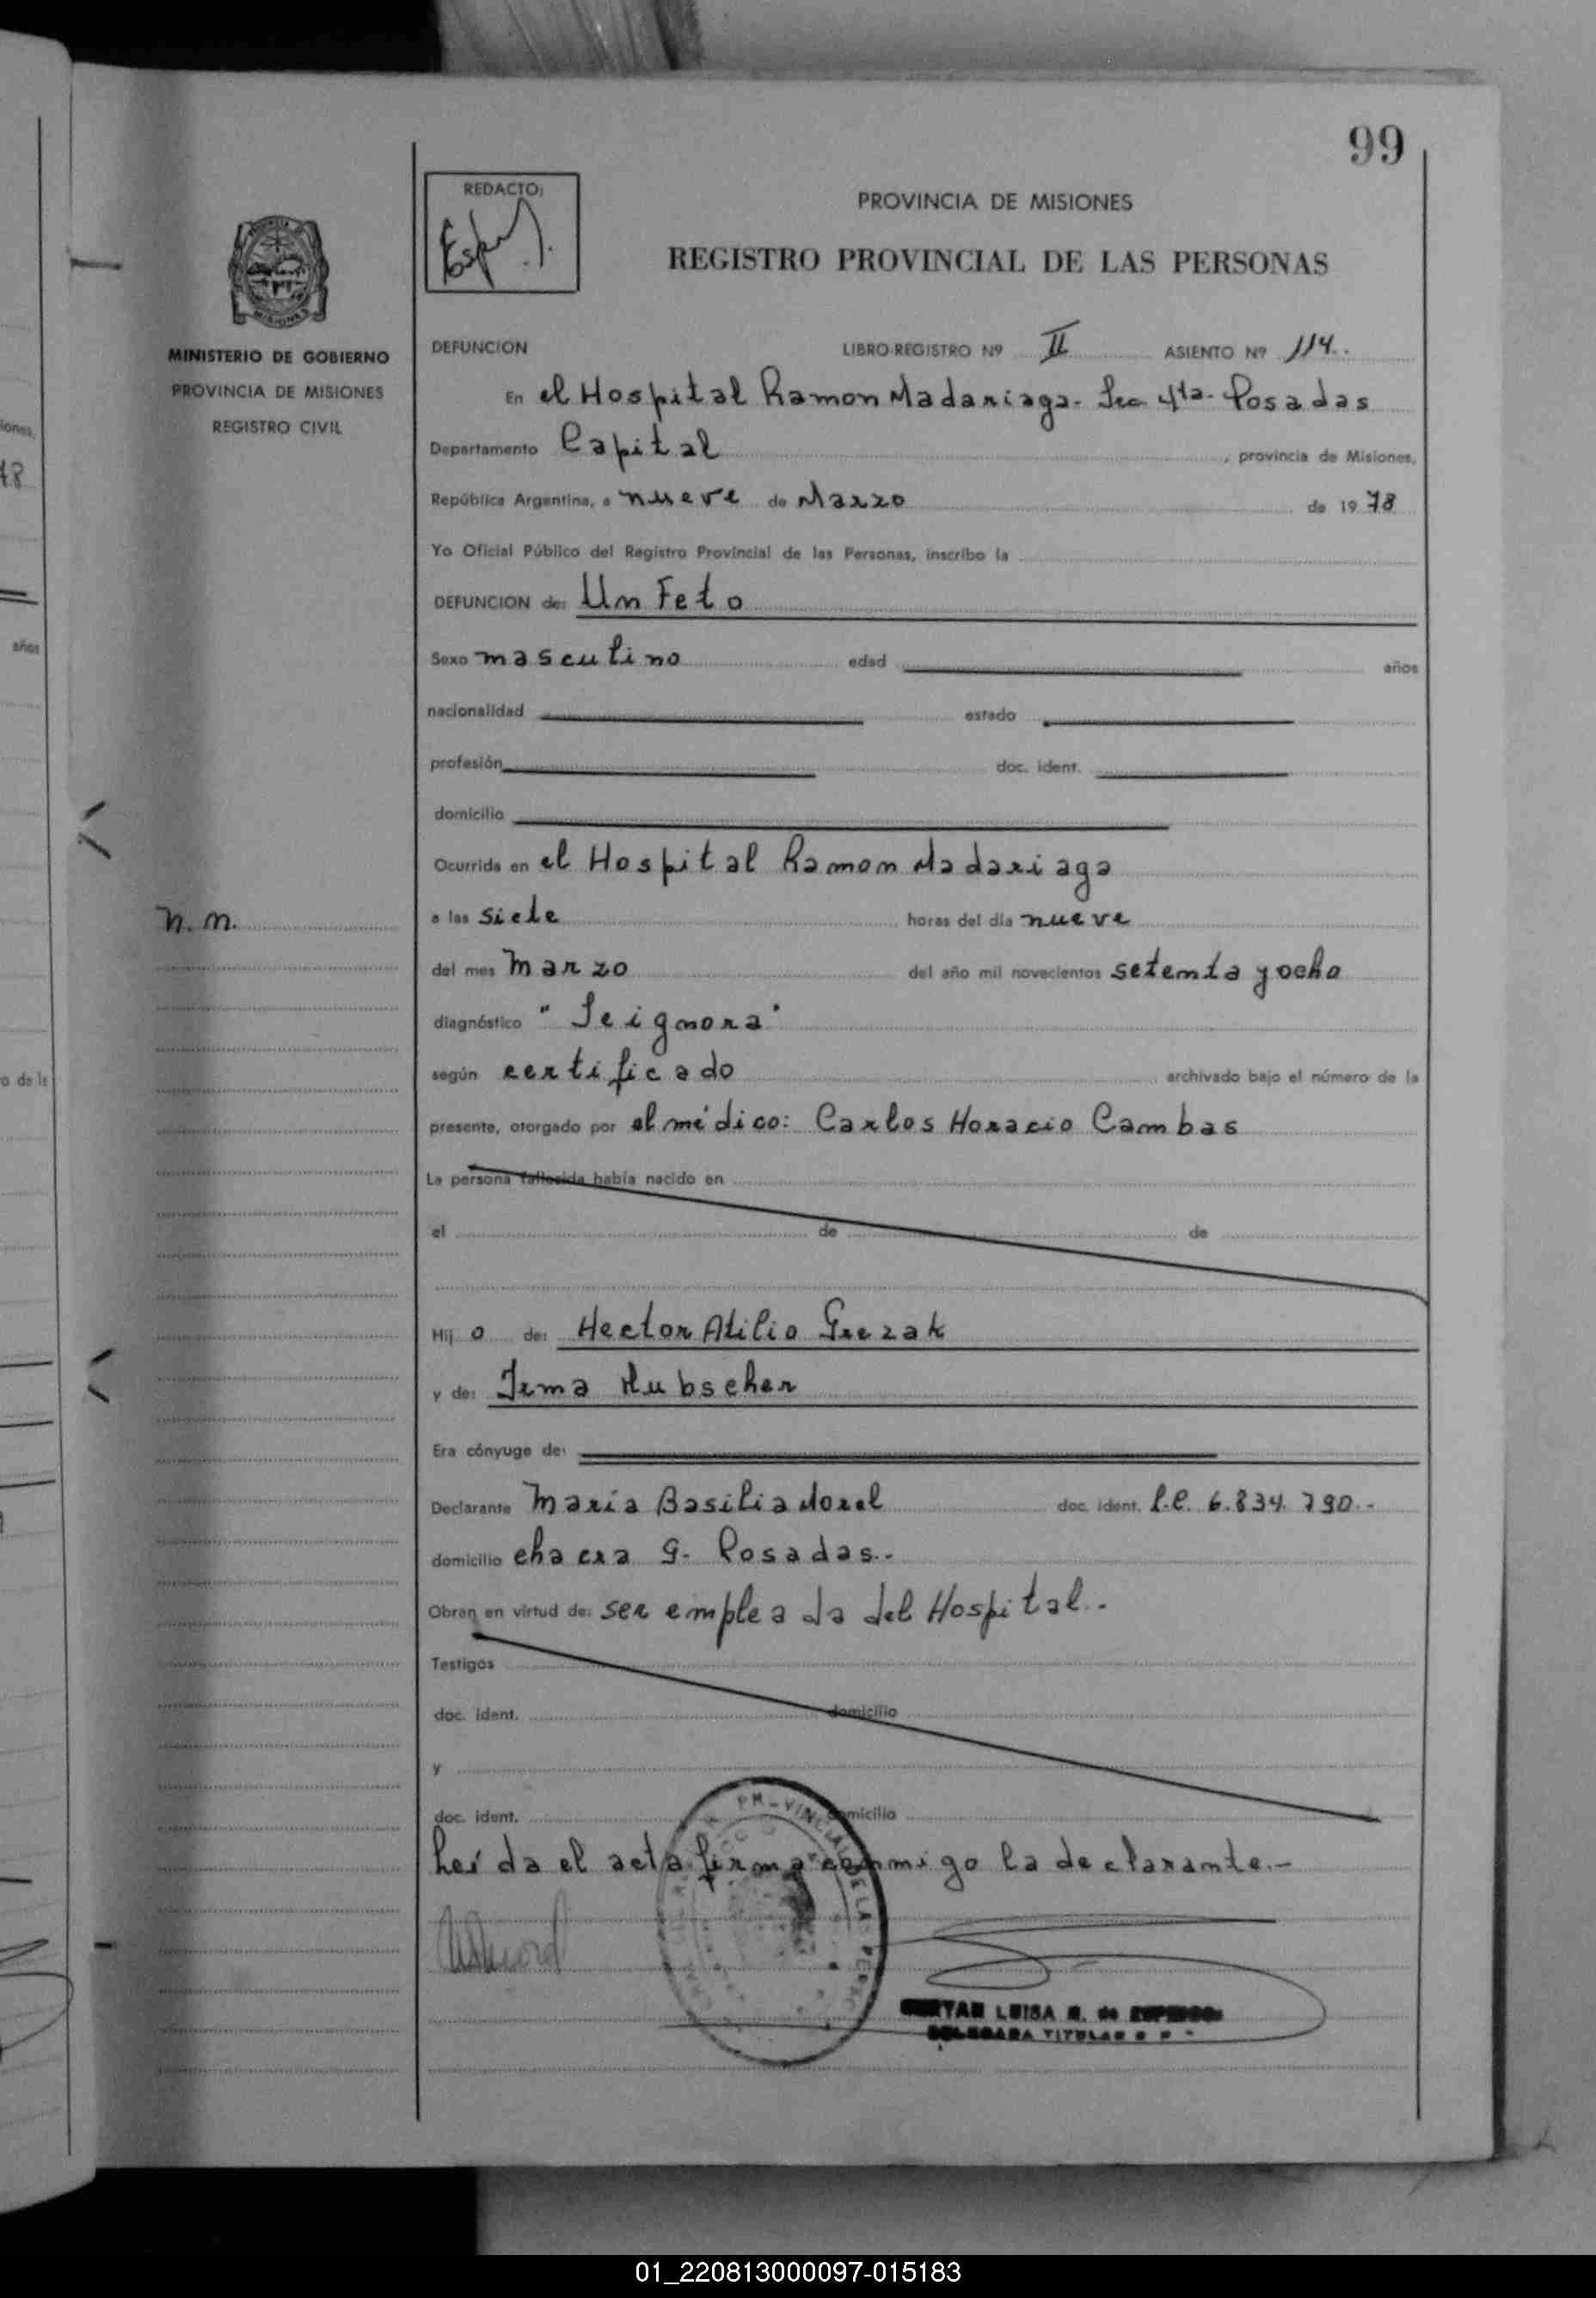 99
REDACTO:
PROVINCIA DE MISIONES
REGISTRO PROVINCIAL DE LAS PERSONAS
MINISTERIO DE GOBIERNO
PROVINCIA DE MISIONES
REGISTRO CIVIL
DEFUNCION LIBRO-REGISTRO Nº II ASIENTO Nº 114.
En el Hospital Ramon Madariaga - Sec 4ta - Posadas
Departamento Capital, provincia de Misiones,
República Argentina, a nueve de Marzo de 1978
Yo Oficial Público del Registro Provincial de las Personas, inscribo la
DEFUNCION de: Un Feto
Sexo masculino edad años
nacionalidad estado
profesión doc. ident.
domicilio
Ocurrida en el Hospital Ramon Madariaga
n.n.
a las siete horas del día nueve
del mes marzo del año mil novecientos setenta y ocho
diagnóstico "Se ignora"
según certificado archivado bajo el número de la
presente, otorgado por el médico: Carlos Horacio Cambas
La persona fallecida había nacido en
el de de
Hijo de: Hector Atilio Grezak
y de: Irma Hubscher
Era cónyuge de:
Declarante Maria Basilia Morel doc. ident. L.C. 6.834.790.-
domicilio chacra 9- Posadas.-
Obran en virtud de: ser empleada del Hospital.-
Testigos
doc. ident. domicilio
y
doc. ident. domicilio
Leída el acta firma conmigo la declarante.-
LUISA
TITULAR
01_220813000097-015183